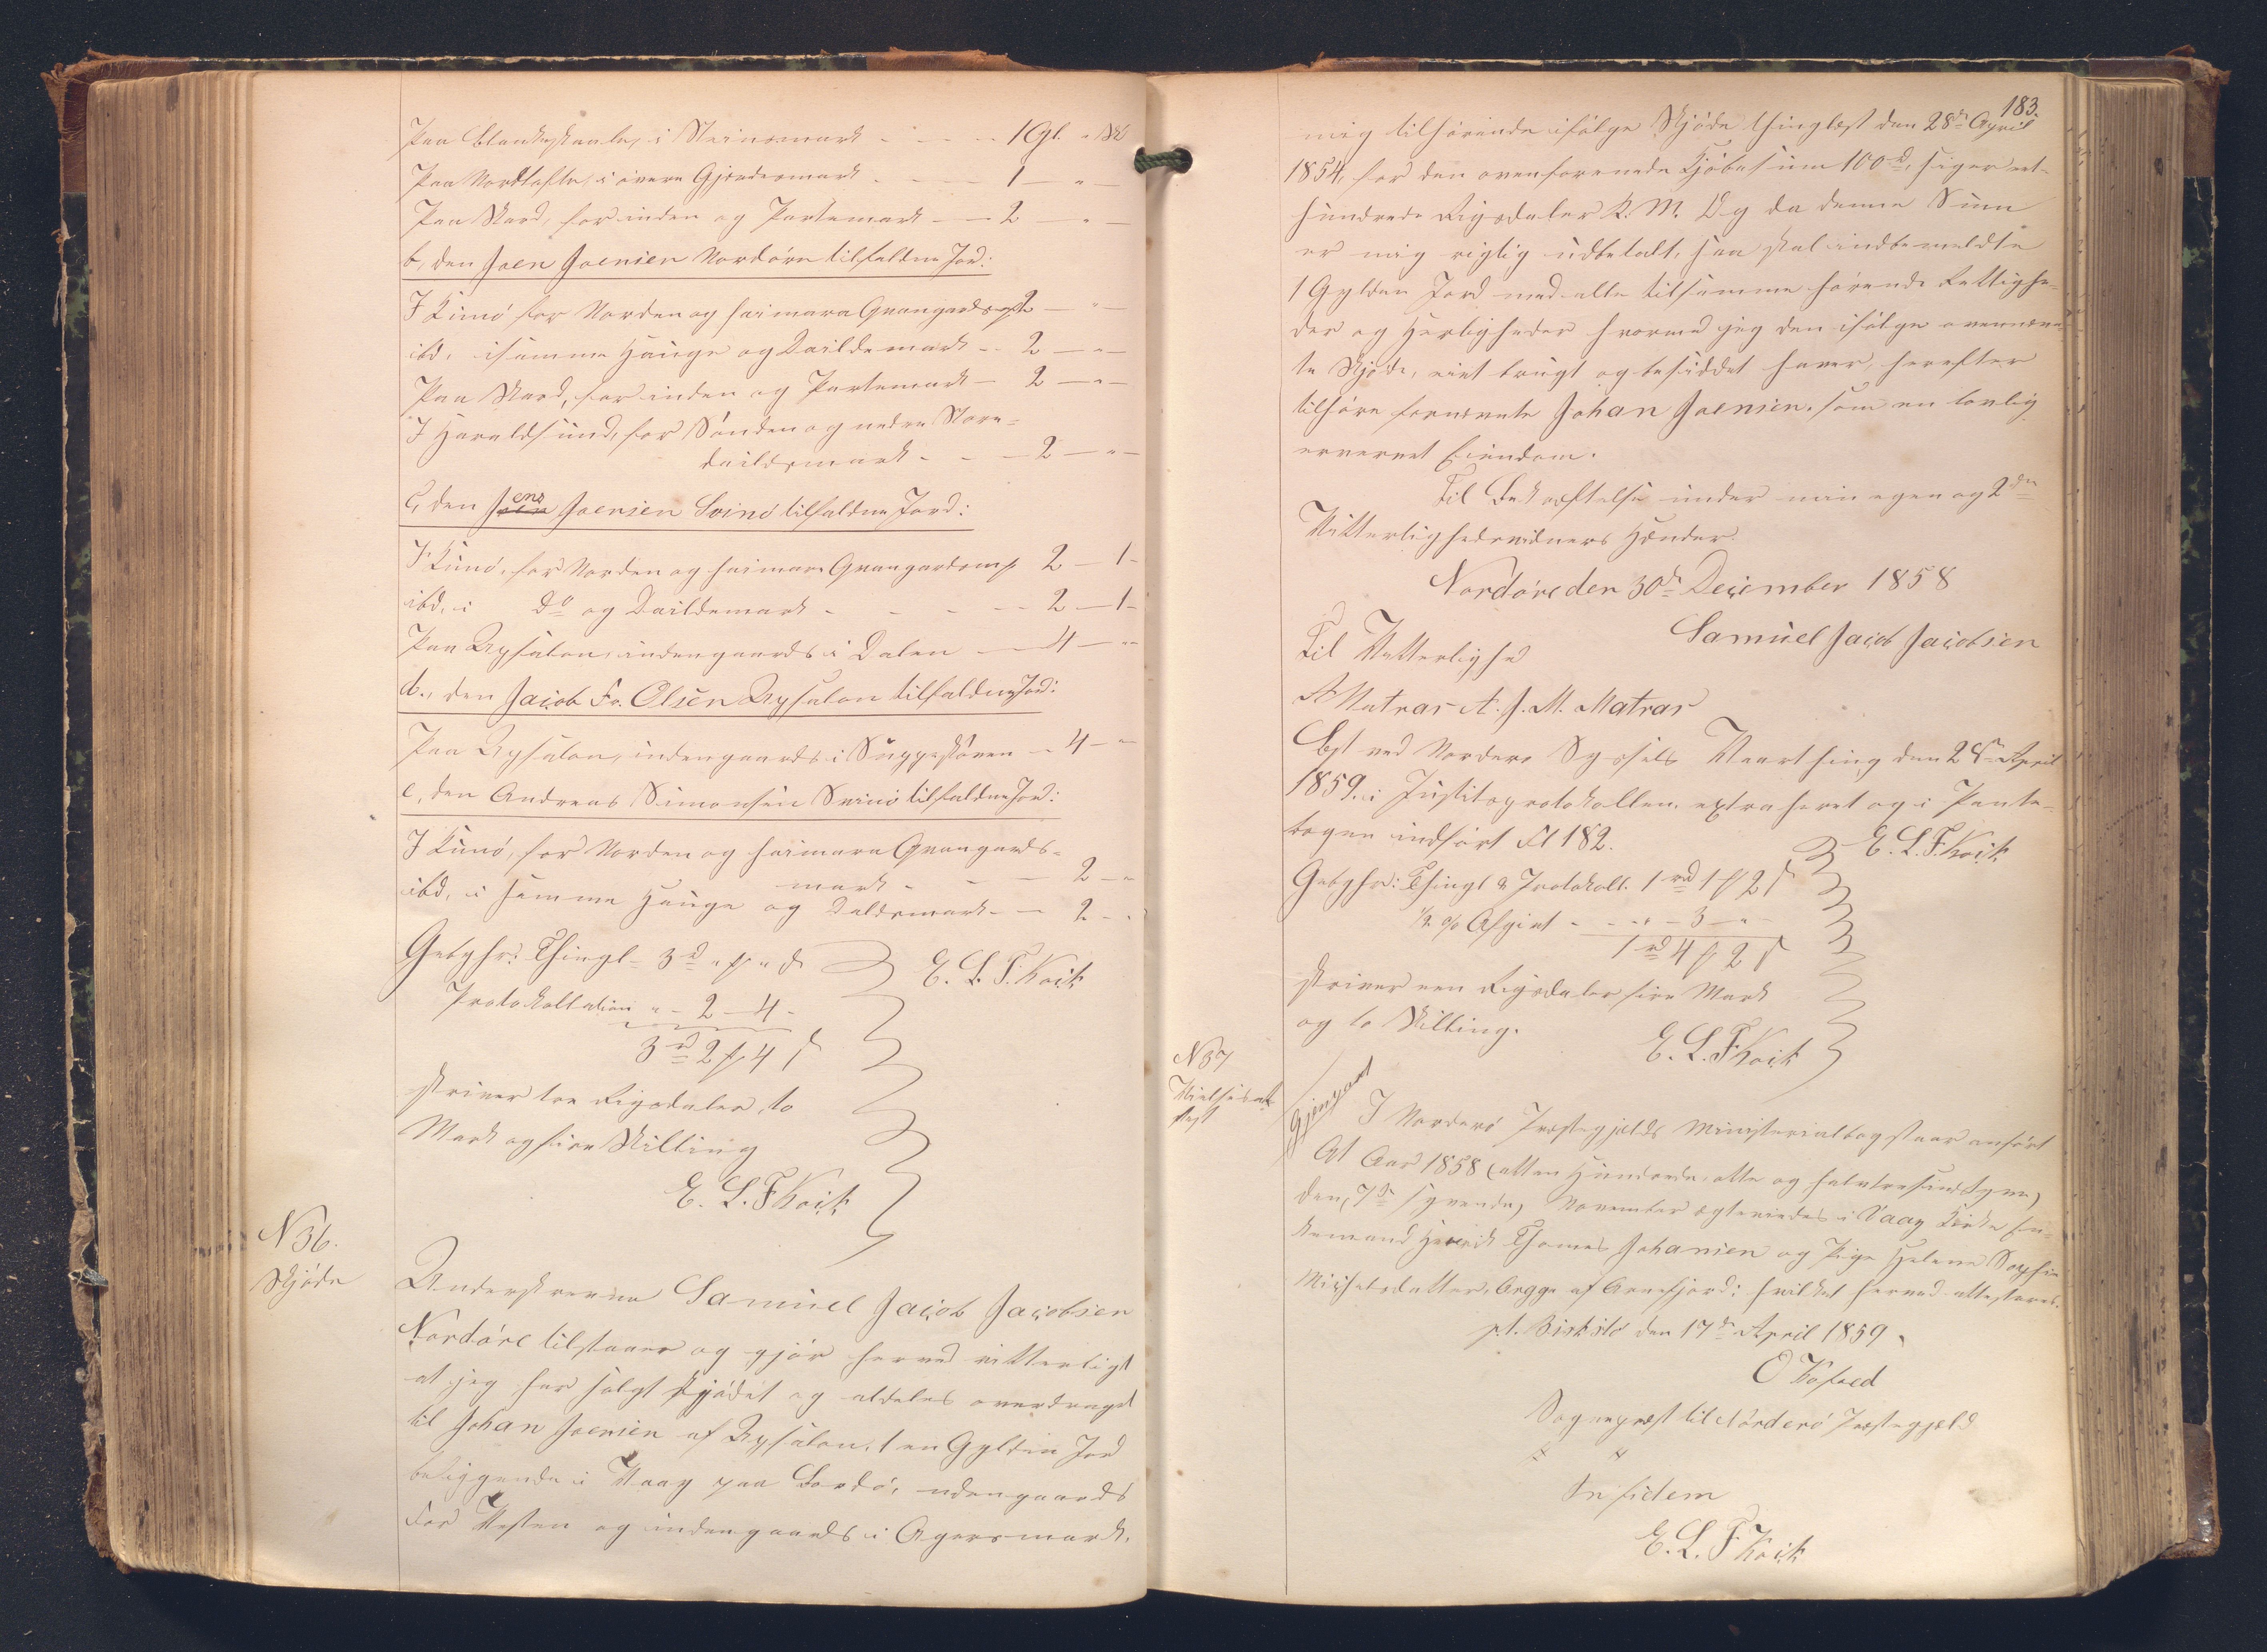 Paa Blankskaale, i Steinsmark - - - 1 Gl. " Sk
Paa Nordtofte, i øvere Gjerdesmark - - - 1 — " —
Paa Skard, for inden og Partemark - - 2 — " —
b, den Joen Joensen Nordøre tilfaldne Jord:
I Kunø for Norden og heimara Gvangards 2 — " —
ibd. i samme Hauge og Deildemark - - 2 — " —
Paa Skard, for inden og Partemark - 2 — " —
I Haraldsund, for Sønden og nedre Store-
deildemark - - - 2 — " —
c, den Jens Joensen Svinø tilfaldne Jord:
I Kunø, for Norden og heimara Gvangardsm 2 — 1 -
ibd. i Do og Deildemark - - - - 2 — 1 -
Paa Qvisalon, indengaards i Dalen - 4 — "
d., den Jacob Fr. Olsen tilfaldne Jord:
Paa indengaards i - 4 - "
e, den Andreas Simonsen Svinø tilfaldne Jord:
I Kunø, for Norden og heimara Gvangards-
mark - - - 2 - "
ibd. i samme Hauge og Deildemark - - 2 - "
Gebyhr: Thingl. 3 rd " " E. L. F. Koch
Protokollation " - 2 - 4 -
3 rd 2 4
skriver tre Rigsdaler, to
Mark og fire Skilling
E. L. F Koch
N 36.
Skjøde
Underskrevne Samuel Jacob Jacobsen
Nordøre tilstaaer og gjør herved vitterligt
at jeg har solgt skjødet og aldeles overdraget
til Johan Joensen af 1 en Gylden Jord
beliggende i Vaag paa Bordø, udengaards
for Vesten og indengaards i Agersmark.
183.
mig tilhørende ifølge Skjøde thinglæst den 28de April
1854, for den ovenforenede Kjøbesum 100 rd, siger eet-
hundrede Rigsdaler R. M. Og da denne Sum
er mig rigtig udbetalt, saa skal indbemeldte
1 Gylden Jord med alle tilsamme hørende Rettighe-
der og Herligheder hvormed jeg den ifølge ovennævn-
te Skjøde, eiet brugt og besiddet haver, herefter
tilhøre fornævnte Johan Joensen, som en lovlig
erhvervet Eiendom.
Til Bekræftelse under min egen og 2de
Vitterlighedsvidners Hænder.
Nordøre den 30te December 1858
Samuel Jacob Jacobsen
Til Vitterlighed
A Matras A. J. M. Matras
Læst ved Norderø Syssels Vaarthing den 28de April
1859. i Justitsprotokollen extraheret og i Pante-
bogen indført Fl 182.
E. L. F. Koch
Gebyhr: Thingl & Protokoll. 1 rd 1 2
1/2 % Afgivt - - " - 3 - "
1 rd 4 2
skriver een Rigsdaler fire Mark
og to Skilling.
E. L. F Koch
N 37
Vielsesat-
test
Gjenpart
I Norderø Præstegjelds Ministerialbog staaer anført
At Aar 1858 (atten Hundrede, otte og halvtresindstyve)
den, 7de (syvende) November ægteviedes i Vaag Kirke En-
kemand Henrik Thomas Johansen og Pige Helene Sophie
Michelsdatter, begge af Arnefjord; hvilket herved attesteres.
p.t. den 17de April 1859.
O Kofoed
Sognepræst til Norderø Præstegjæld
In fidem
E. L. F Koch